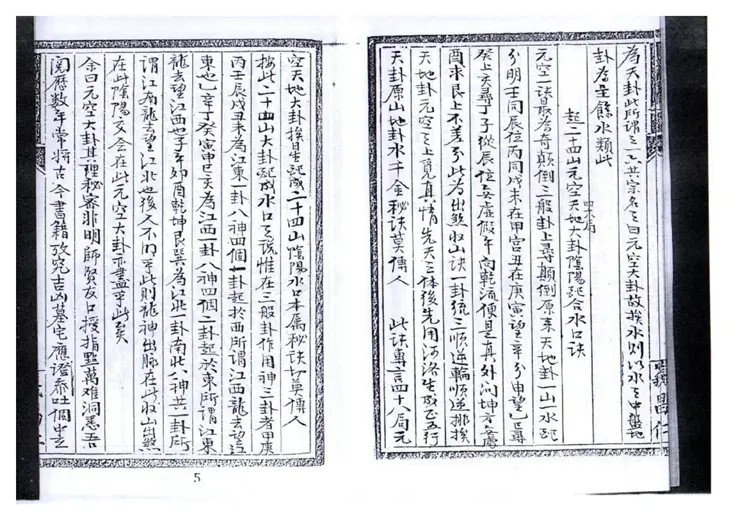 為天卦此所謂之一六共宗名之曰元空大卦故挨水則以水之中盤地
卦為主餘水類此
起二十四山元空天地大卦陰陽配合水口訣
元空一訣最為奇顛倒三般卦上尋顛倒原來天地卦一山一水配
分明壬同辰位丙同戌未在甲宮丑在庚寅望辛兮申望乙巳尋
癸上亥尋丁子從辰位
酉求艮上不差兮此為出煞收山訣一卦統三順逆輪順逆挪挨
天地卦元空之上覓真情先天三體後先用河洛生成正五行
天卦原山地卦水千金秘訣莫傳人 此訣專言四十八局元
空天地大卦挨星起成二十四山陰陽水口本屬秘訣切莫傳人
按此二十四山大卦起成水口之訣惟在三般卦作用神三卦者甲庚
丙壬辰戌丑未為江東一卦八神四個一卦起於西所謂江西龍去望江
東也乙辛丁癸寅申巳亥為江西一卦八神四個二卦起於東所謂江東
龍去望江西也子午卯酉乾坤艮巽為江北一卦南北八神共一卦所
謂江南龍去望江北也後人不明乎此則龍神出脈在此收山出煞
在此陰陽交會在此元空大卦亦盡乎此矣
余曰元空大卦其理秘密非明師賢友口授指點萬難洞悉吾
閱歷數年常將古今書籍攷究吉凶墓宅應證
5